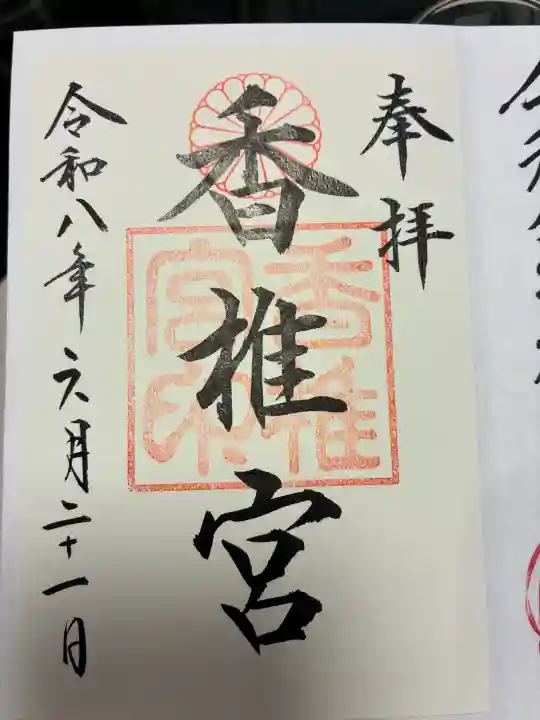 奉拝
香椎宮
香椎宮印
令和八年六月二十一日